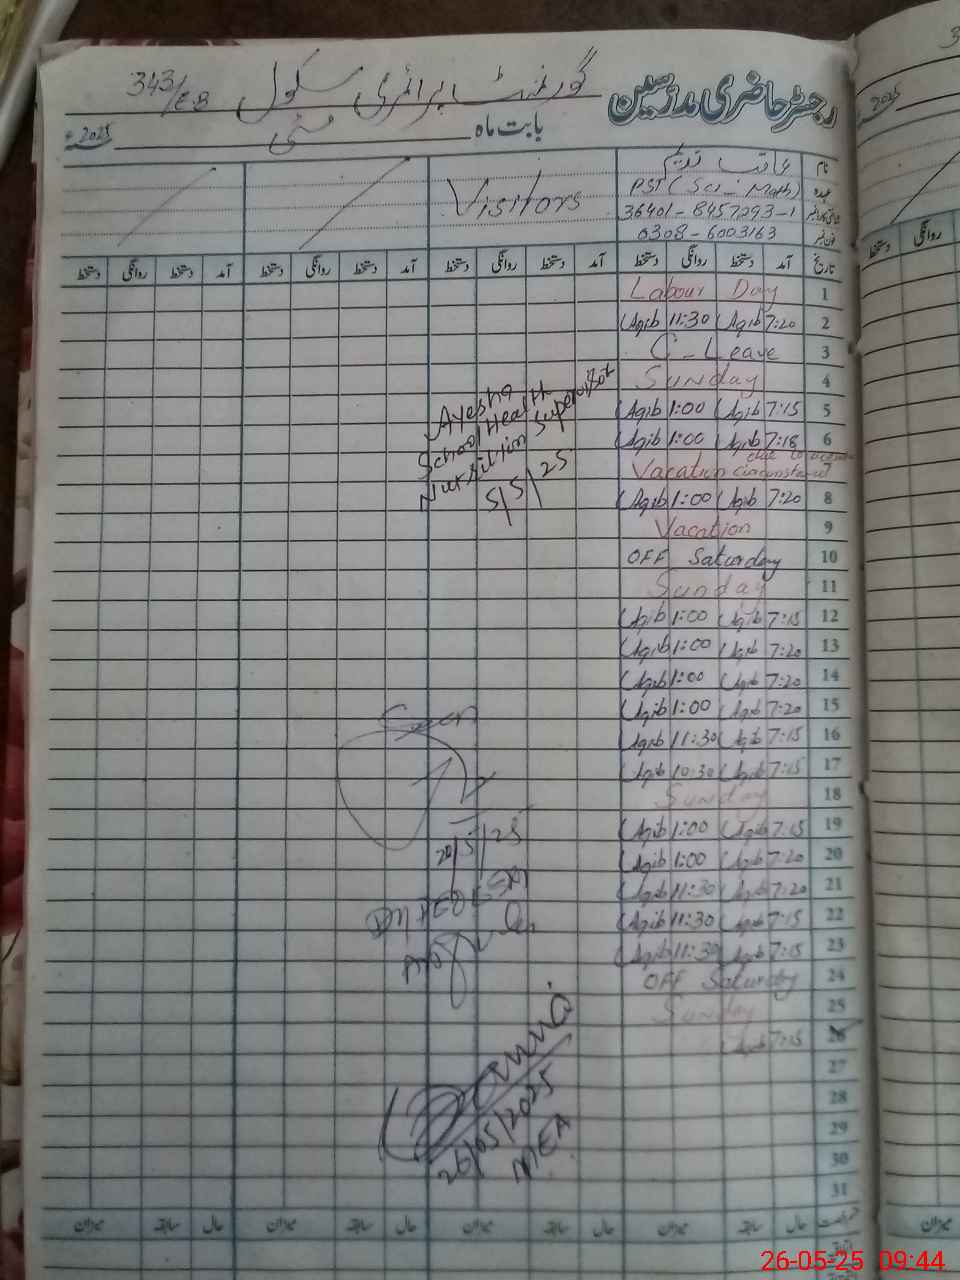 گورنمنٹ پرائمری سکول 343/EB
رجسٹر حاضری مدرسین
بابت ماہ مئی 2025ء
نام عاقب ندیم
عہدہ PST (Sci - Math)
شناختی کارڈ نمبر 36401-8457293-1
فون نمبر 0308-6003163
Visitors
تاریخ آمد دستخط روانگی دستخط آمد دستخط روانگی دستخط آمد دستخط روانگی دستخط آمد دستخط روانگی دستخط
1 Labour Day
2 7:20 Aqib 11:30 Aqib
3 C-Leave
4 Sunday
5 7:15 Aqib 1:00 Aqib
6 7:18 Aqib 1:00 Aqib
Vacation due to
8 7:20 Aqib 1:00 Aqib
9 Vacation
10 OFF Saturday
11 Sunday
12 7:15 Aqib 1:00 Aqib
13 7:20 Aqib 1:00 Aqib
14 7:20 Aqib 1:00 Aqib
15 7:20 Aqib 1:00 Aqib
16 7:15 Aqib 11:30 Aqib
17 7:15 Aqib 10:30 Aqib
18 Sunday
19 7:15 Aqib 1:00 Aqib
20 7:20 Aqib 1:00 Aqib
21 7:20 Aqib 11:30 Aqib
22 7:15 Aqib 11:30 Aqib
23 7:15 Aqib 11:30 Aqib
24 OFF Saturday
25 Sunday
26 7:15 Aqib
27
28
29
30
31
Ayesha
School Health
Nutrition Supervisor
5/5/25
Seen
20/5/25
26/05/2025
MEA
حال سابقہ میزان حال سابقہ میزان حال سابقہ میزان حال سابقہ میزان
26-05-25 09:44